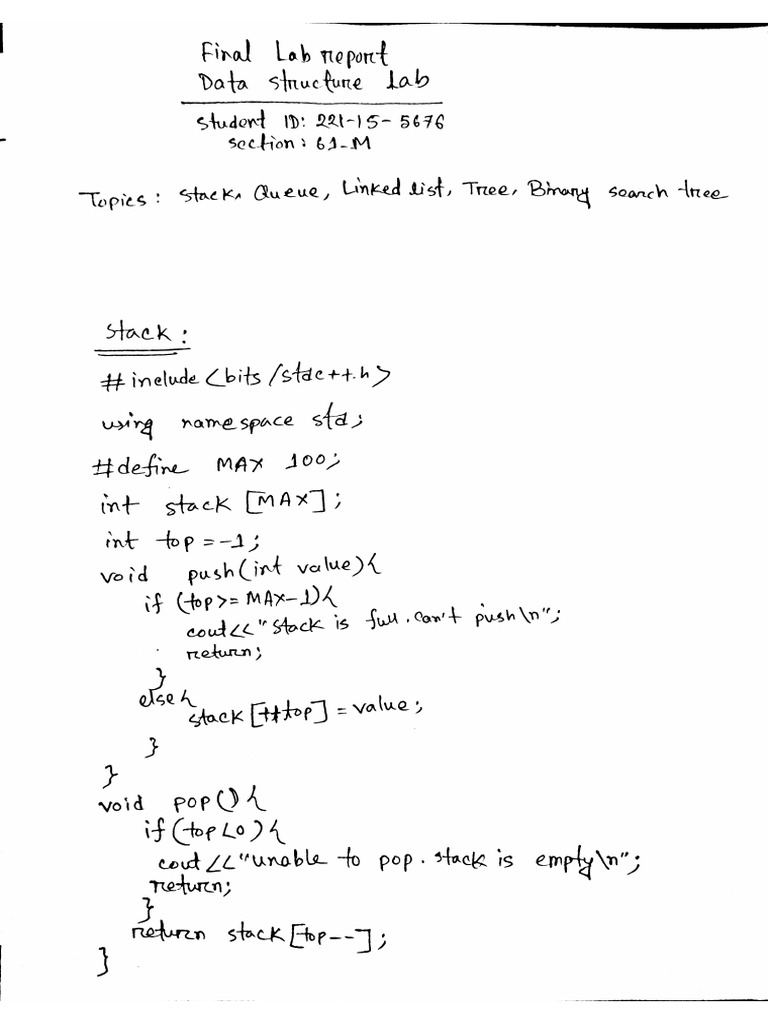 Final Lab report
Data structure Lab
Student ID: 221-15-5676
section: 61-M
Topics: Stack, Queue, Linked list, Tree, Binary search tree
Stack:
#include<bits/stdc++.h>
using namespace std;
#define MAX 100;
int stack [MAX];
int top=-1;
void push(int value){
if (top>= MAX-1){
cout<<"Stack is full. can't push\n";
return;
}
else{
stack[++top]=value;
}
}
void pop(){
if(top<0){
cout<<"unable to pop. stack is empty\n";
return;
}
return stack[top--];
}